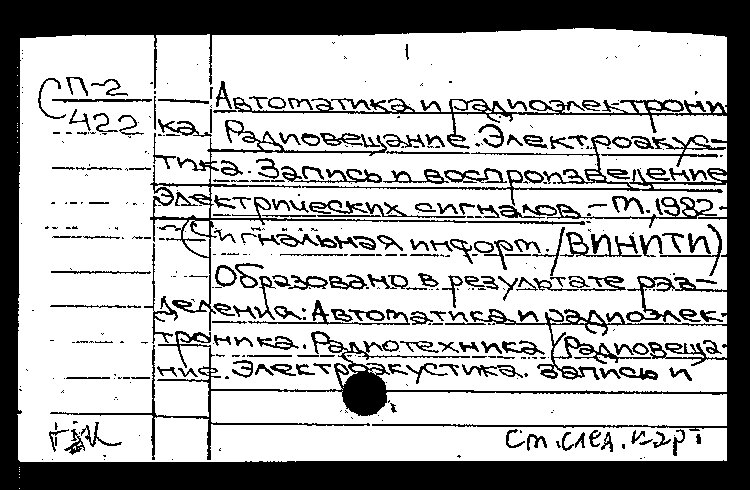 П-2
422
Автоматика и радиоэлектрони-
ка. Радиовещание. Электроакус-
тика. Запись и воспроизведение
электрических сигналов. - М., 1982-
(Сигнальная информ. / ВИНИТИ)
Образовано в результате раз-
деления: Автоматика и радиоэлек-
троника. Радиотехника (Радиовеща-
ние. Электроакустика. Запись и
См. след. карт